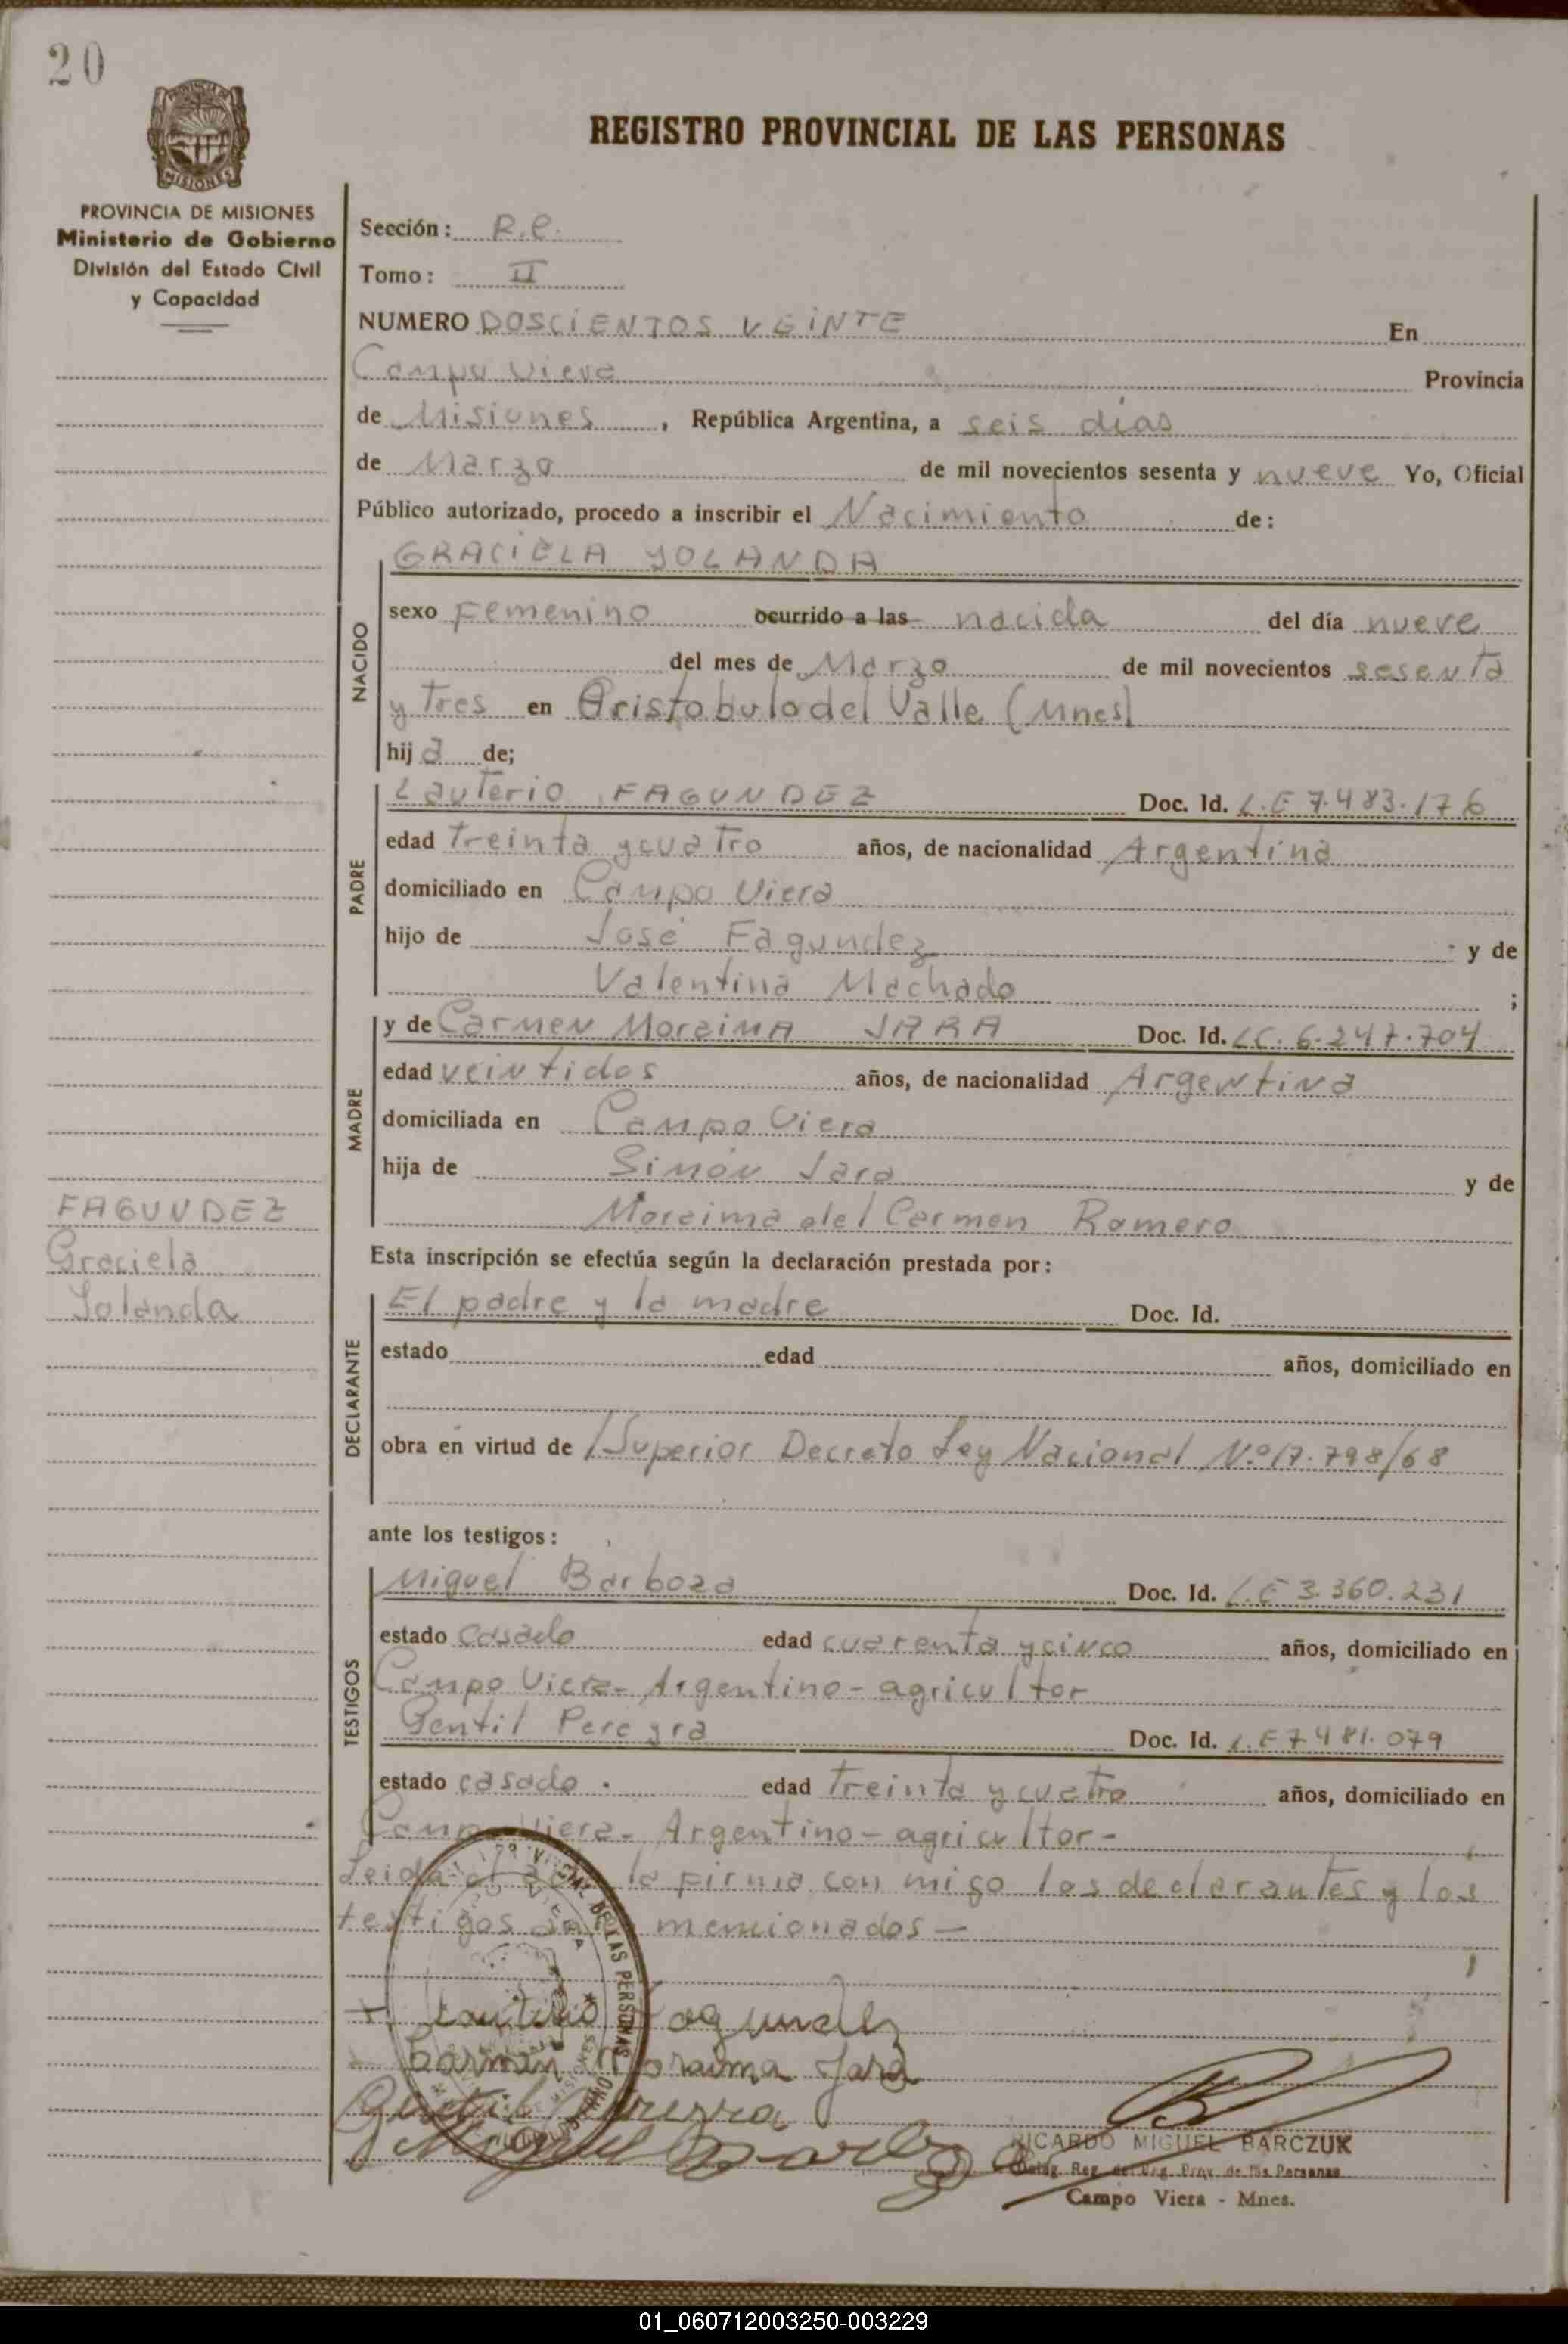 20
PROVINCIA DE MISIONES
MISIONES
PROVINCIA DE MISIONES
Ministerio de Gobierno
División del Estado Civil
y Capacidad
REGISTRO PROVINCIAL DE LAS PERSONAS
Sección: R.C.
Tomo: II
NUMERO DOSCIENTOS VEINTE En
Campo Viera Provincia
de Misiones, República Argentina, a seis días
de Marzo de mil novecientos sesenta y nueve Yo, Oficial
Público autorizado, procedo a inscribir el Nacimiento de:
GRACIELA YOLANDA
NACIDO
sexo Femenino ocurrido a las nacida del día nueve
del mes de Marzo de mil novecientos sesenta
y tres en Aristobulo del Valle (Mnes)
hija de;
PADRE
Lauterio FAGUNDEZ Doc. Id. L.E 7.483.176
edad treinta y cuatro años, de nacionalidad Argentina
domiciliado en Campo Viera
hijo de José Fagundez y de
Valentina Machado ;
MADRE
y de Carmen Moraima JARA Doc. Id. LC. 6.247.704
edad veintidos años, de nacionalidad Argentina
domiciliada en Campo Viera
hija de Simón Jara y de
Moraima del Carmen Romero
FAGUNDEZ
Graciela
Yolanda
Esta inscripción se efectúa según la declaración prestada por:
DECLARANTE
El padre y la madre Doc. Id.
estado edad años, domiciliado en
obra en virtud de /Superior Decreto Ley Nacional N.º 17.798/68
ante los testigos:
TESTIGOS
Miguel Barboza Doc. Id. L.E 3.360.231
estado casado edad cuarenta y cinco años, domiciliado en
Campo Viera- Argentino- agricultor
Gentil Pereyra Doc. Id. L.E 7.481.079
estado casado. edad treinta y cuatro años, domiciliado en
Campo Viera- Argentino- agricultor-
Leida el la firma con migo los declarantes y los
testigos mencionados-
DE LAS PERSONAS
Lauterio Fagundez
Carmen Moraima Jara
Gentil Pereyra
Miguel Barboza
RICARDO MIGUEL BARCZUK
Deleg. Reg. del Reg. Prov. de las Personas
Campo Viera - Mnes.
01_060712003250-003229